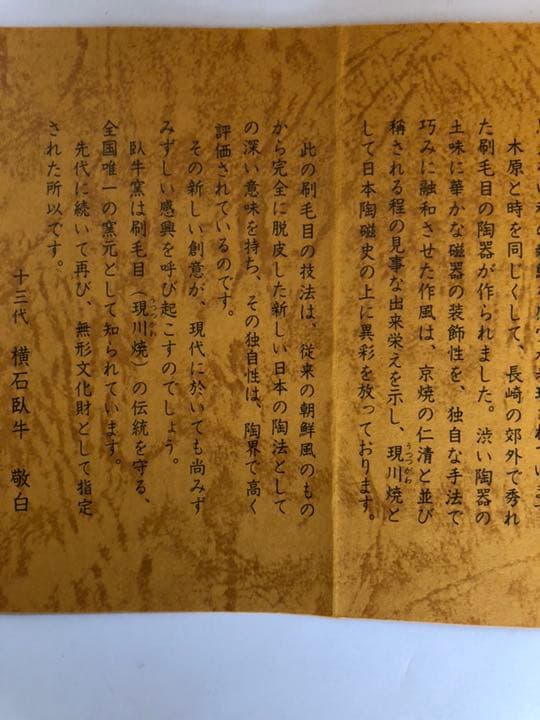 木原と時を同じくして、長崎の郊外で秀れ
た刷毛目の陶器が作られました。渋い陶器の
土味に華かな磁器の装飾性を、独自な手法で
巧みに融和させた作風は、京焼の仁清と並び
称される程の見事な出来栄えを示し、現川焼と
うつつがわ
して日本陶磁史の上に異彩を放っております。
此の刷毛目の技法は、従来の朝鮮風のもの
から完全に脱皮した新しい日本の陶法として
の深い意味を持ち、その独自性は、陶界で高く
評価されているのです。
その新しい創意が、現代に於いても尚みず
みずしい感興を呼び起こすのでしょう。
臥牛窯は刷毛目（現川焼）の伝統を守る、
うつつがわ
全国唯一の窯元として知られています。
先代に続いて再び、無形文化財として指定
された所以です。
十三代 横石臥牛 敬白